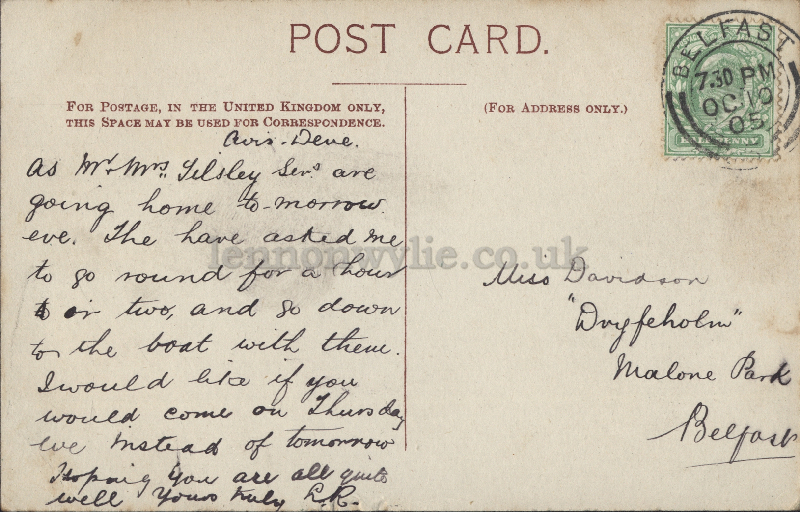 POST CARD.
FOR POSTAGE, IN THE UNITED KINGDOM ONLY,
THIS SPACE MAY BE USED FOR CORRESPONDENCE.
(FOR ADDRESS ONLY.)
BELFAST
7.30 PM
OC 10
05
Dene.
As Mr & Mrs Tilsley Senr are
going home to-morrow
eve. The have asked me
to go round for a hour
or two, and go down
to the boat with them.
I would like if you
would come on Thursday
eve instead of tomorrow
Hoping you are all quite
well Yours truly L.R.
Miss Davidson
"Dryfeholm"
Malone Park
Belfast
lennonwylie.co.uk